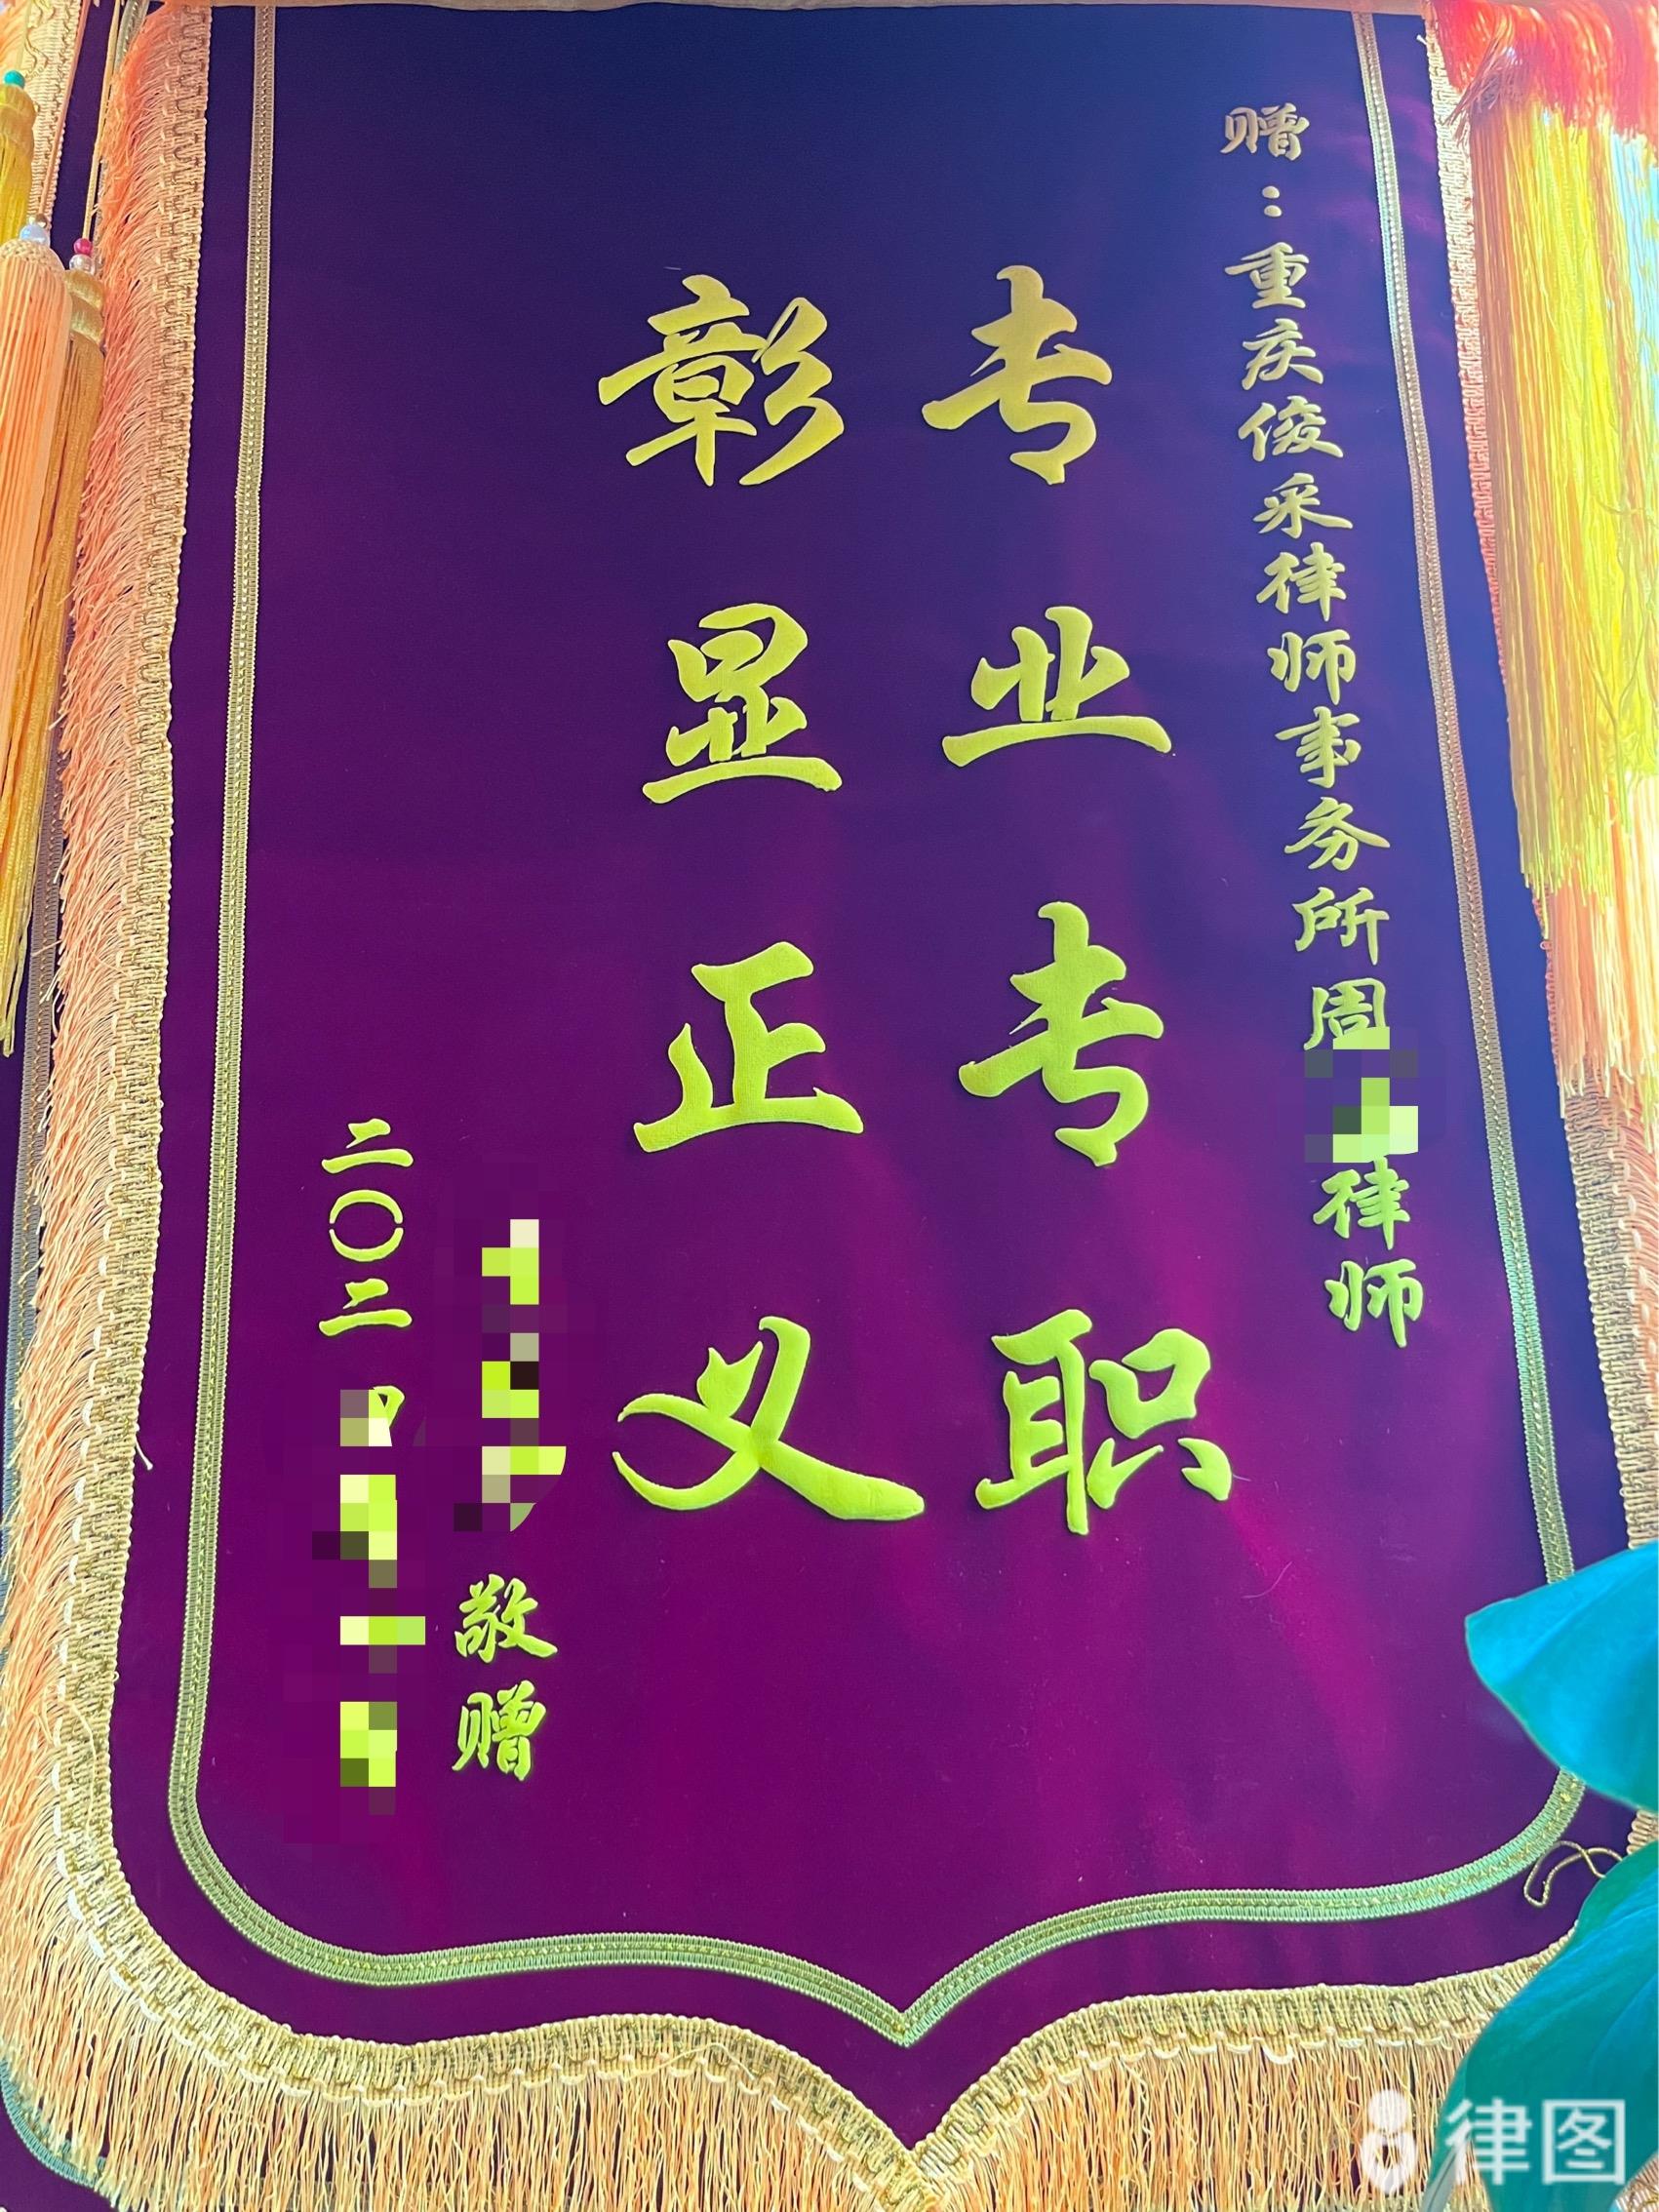 赠：重庆俊采律师事务所周律师
专业专职
彰显正义
敬赠
二〇二
律图